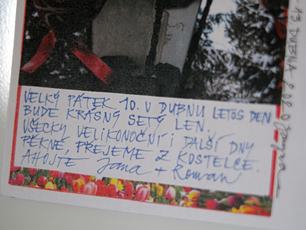 VELKÝ PÁTEK 10. V DUBNU LETOS DEN
BUDE KRÁSNÝ SETÝ LEN.
VŠECKY VELIKONOČNÍ I DALŠÍ DNY
PĚKNÉ, PŘEJEME Z KOSTELCE.
AHOJTE Jana + Roman